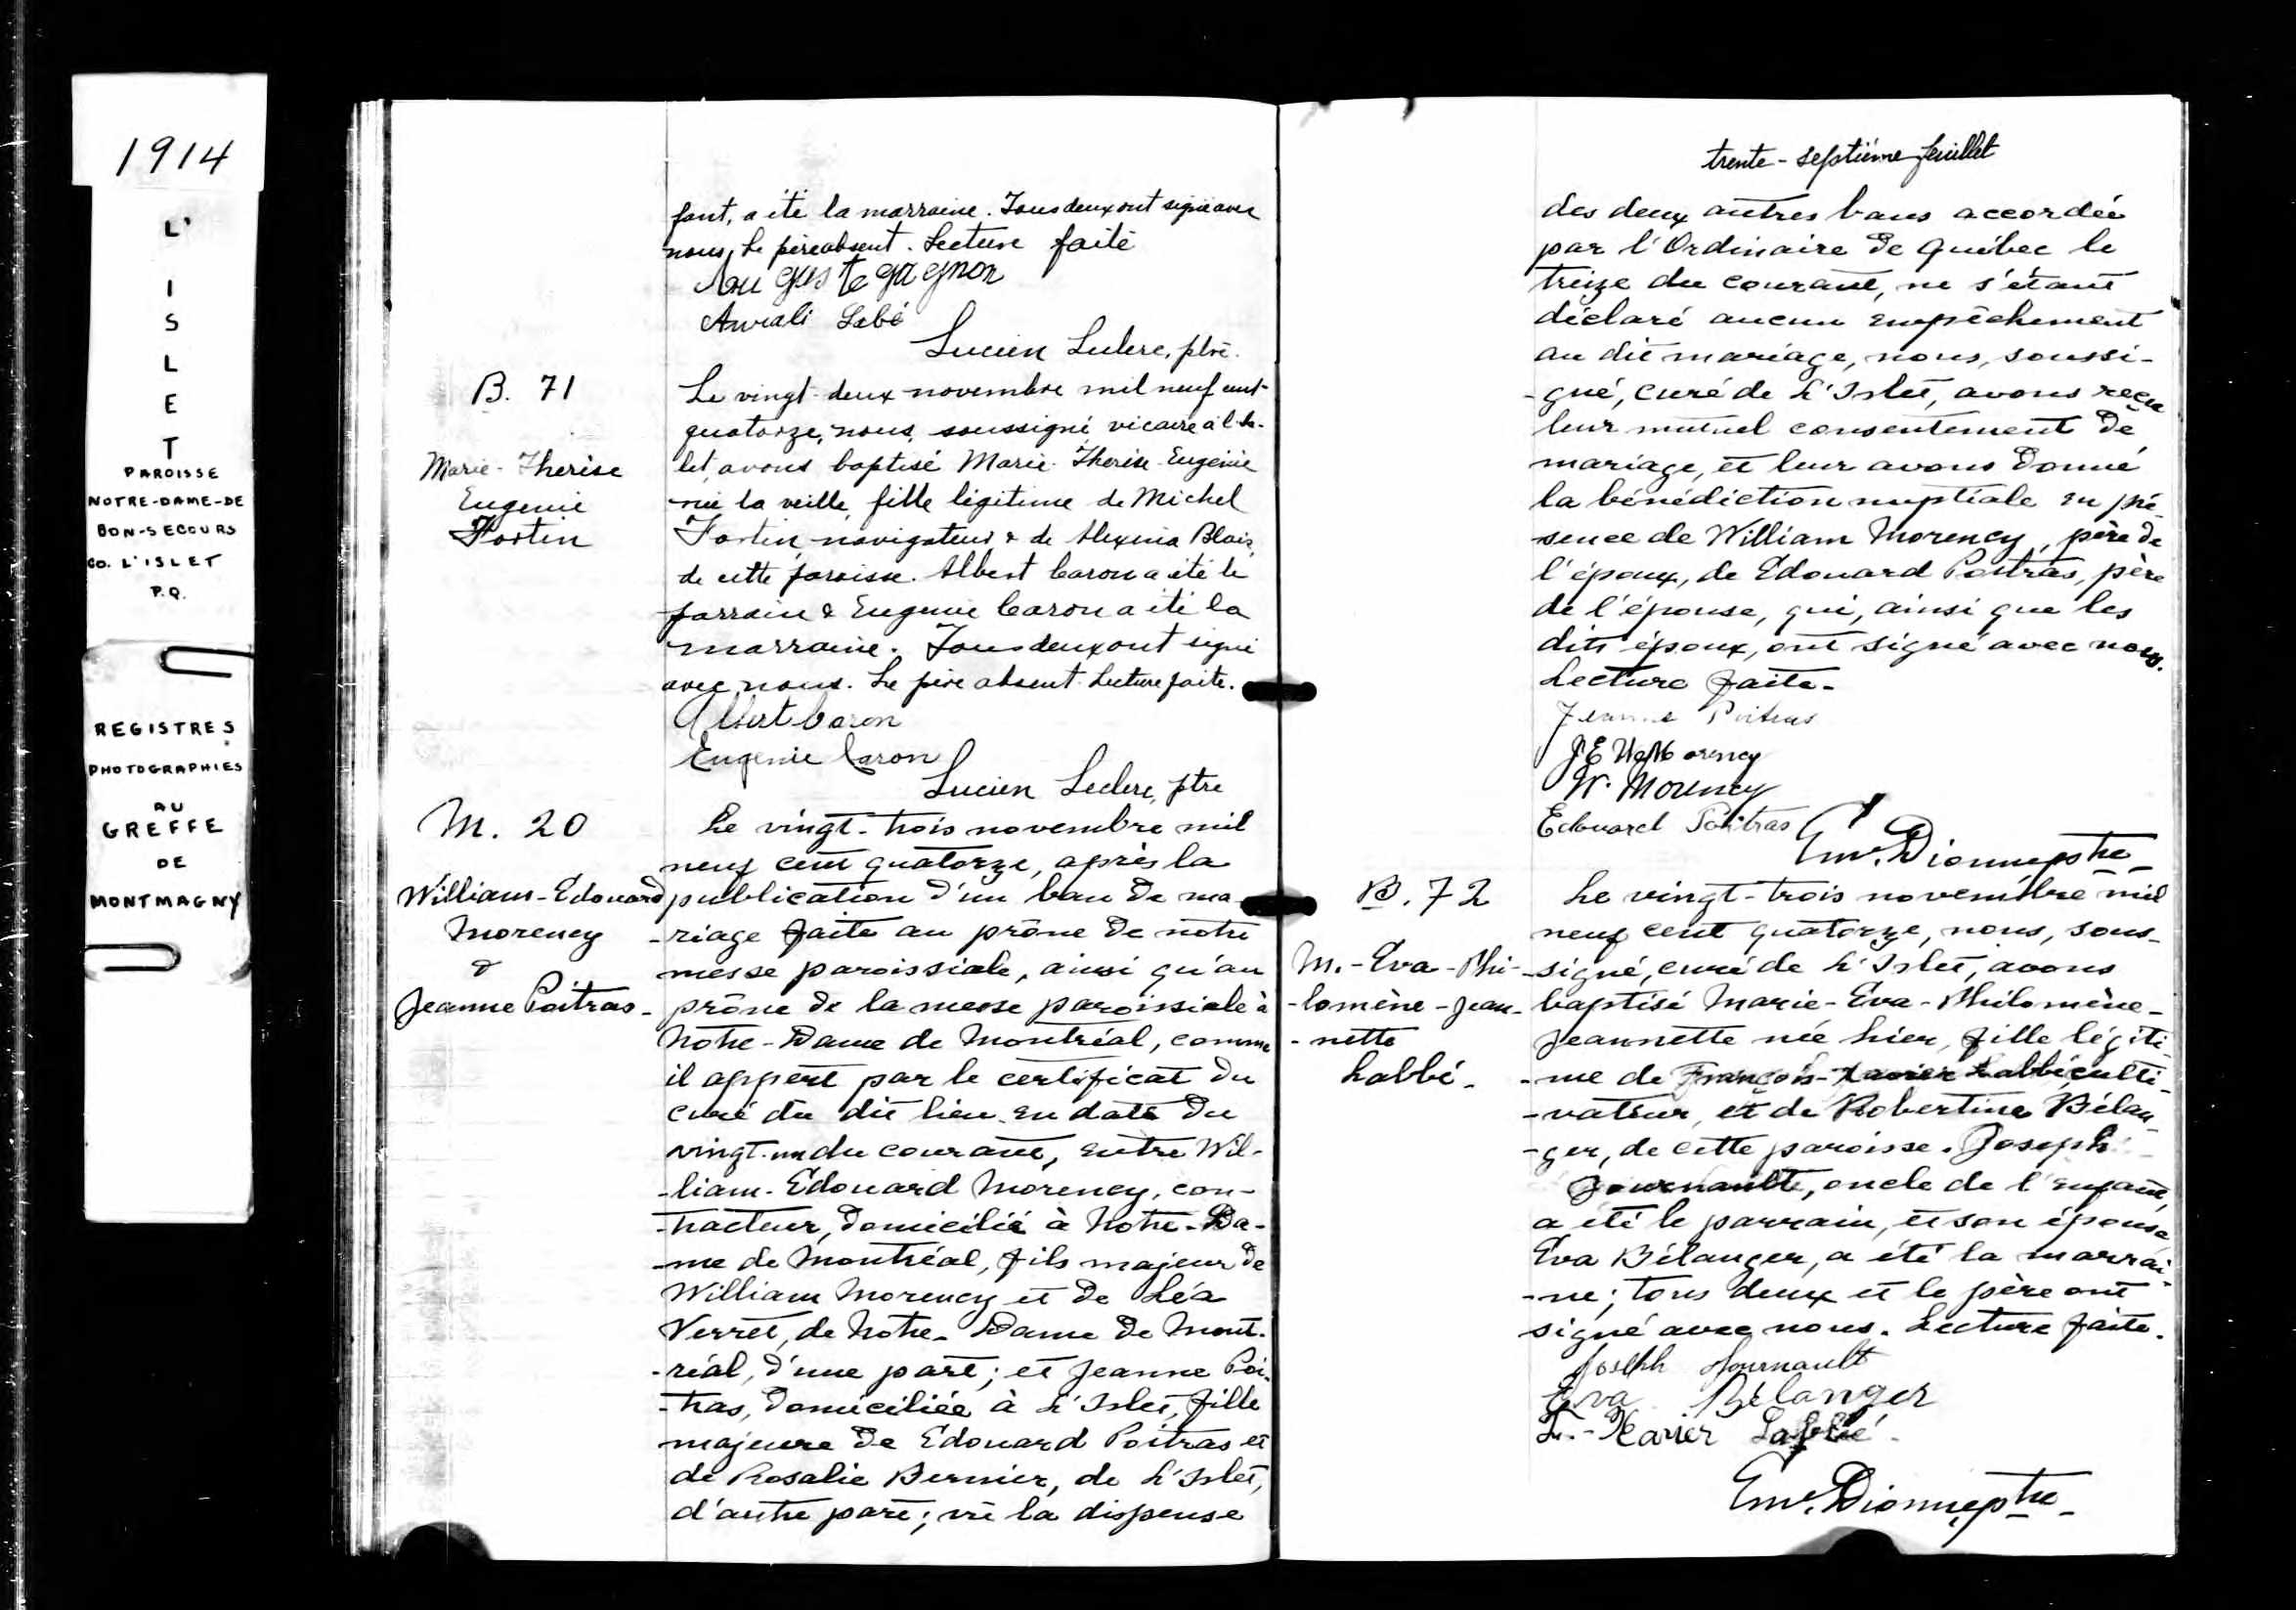 1914
L'
I
S
L
E
T
PAROISSE
NOTRE-DAME-DE
BON-SECOURS
CO. L'ISLET
P.Q.
REGISTRES
PHOTOGRAPHIES
AU
GREFFE
DE
MONTMAGNY
fant, a été la marraine. Tous deux ont signé avec
nous, Le père absent. Lecture faite
Auguste gagnon
Labé
Lucien Leclerc, ptre.
B. 71
Marie-Therèse
Eugenie
Fortin
Le vingt-deux novembre mil neuf cent-
quatorze, nous, soussigné vicaire à l'Is-
let, avons baptisé Marie-Therèse-Eugénie
née la veille, fille légitime de Michel
Fortin, navigateur & de Alexina Blais,
de cette paroisse. Albert Caron a été le
parrain & Eugenie Caron a été la
marraine. Tous deux ont signé
avec nous. Le père absent. Lecture faite.
Albert Caron
Eugenie Caron
Lucien Leclerc, ptre
M. 20
William-Edouard
Morency
&
Jeanne Poitras-
Le vingt-trois novembre mil
neuf cent quatorze, après la
publication d'un ban de ma-
-riage faite au prône de notre
messe paroissiale, ainsi qu'au
prône de la messe paroissiale à
Notre-Dame de Montréal, comme
il appert par le certificat du
curé du dit lieu en date du
vingt-un du courant, entre Wil-
-liam-Edouard Morency, con-
-tracteur, domicilié à Notre-Da-
-me de Montréal, fils majeur de
William Morency et de Léa
Verret, de Notre-Dame de Mont-
-réal, d'une part; et Jeanne Poi-
-tras, domiciliée à L'Islet, fille
majeure de Edouard Poitras et
de Rosalie Bernier, de L'Islet,
d'autre part; vu la dispense
trente-septième feuillet
des deux autres bans accordée
par l'Ordinaire de Québec le
treize du courant, ne s'étant
déclaré aucun empêchement
au dit mariage, nous, soussi-
-gné, curé de L'Islet, avons reçu
leur mutuel consentement de
mariage, et leur avons donné
la bénédiction nuptiale en pré-
sence de William Morency, père de
l'époux, de Edouard Poitras, père
de l'épouse, qui, ainsi que les
dits époux, ont signé avec nous.
Lecture faite.
Jeanne Poitras
J E W Morency
W. Morency
Edouard Poitras
Em. Dionne, ptre-
B. 72
M.-Eva-Phi-
-lomène-Jean-
-nette
Labbé-
Le vingt-trois novembre mil
neuf cent quatorze, nous, sous-
-signé, curé de L'Islet, avons
baptisé Marie-Eva-Philomène-
Jeannette née hier, fille légiti-
-me de François-Xavier Labbé, culti-
-vateur, et de Robertine Bélan-
-ger, de cette paroisse. Joseph
Journault, oncle de l'enfant,
a été le parrain, et son épouse
Eva Bélanger, a été la marrai-
-ne; tous deux et le père ont
signé avec nous. Lecture faite.
Joseph Journault
Eva Bélanger
F.-Xavier Labbé-
Em. Dionne, ptre-